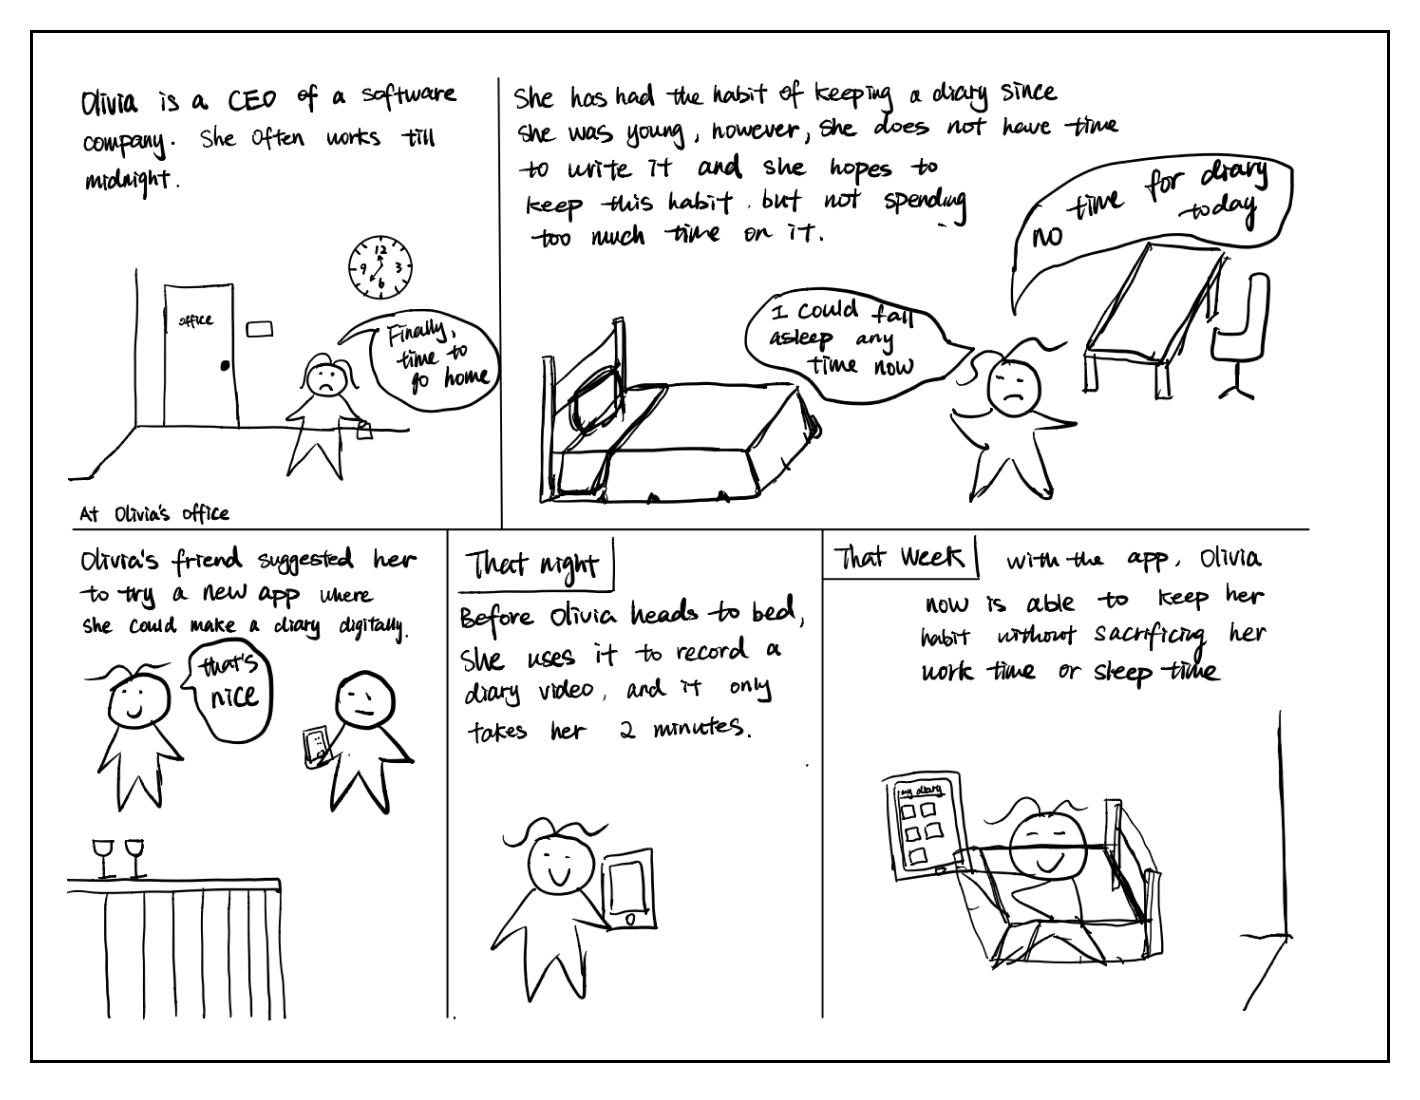 Olivia is a CEO of a software
company. She often works till
midnight.
12
9 3
6
office
Finally,
time to
go home
At Olivia's office
She has had the habit of keeping a diary since
she was young, however, she does not have time
to write it and she hopes to
keep this habit. but not spending
too much time on it.
I could fall
asleep any
time now
no time for diary
today
Olivia's friend suggested her
to try a new app where
she could make a diary digitally.
that's
nice
That night
Before Olivia heads to bed,
she uses it to record a
diary video, and it only
takes her 2 minutes.
That week
with the app, Olivia
now is able to keep her
habit without sacrificing her
work time or sleep time
my diary